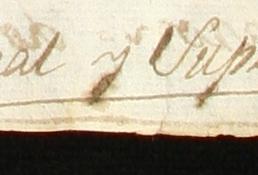 eal y Sup